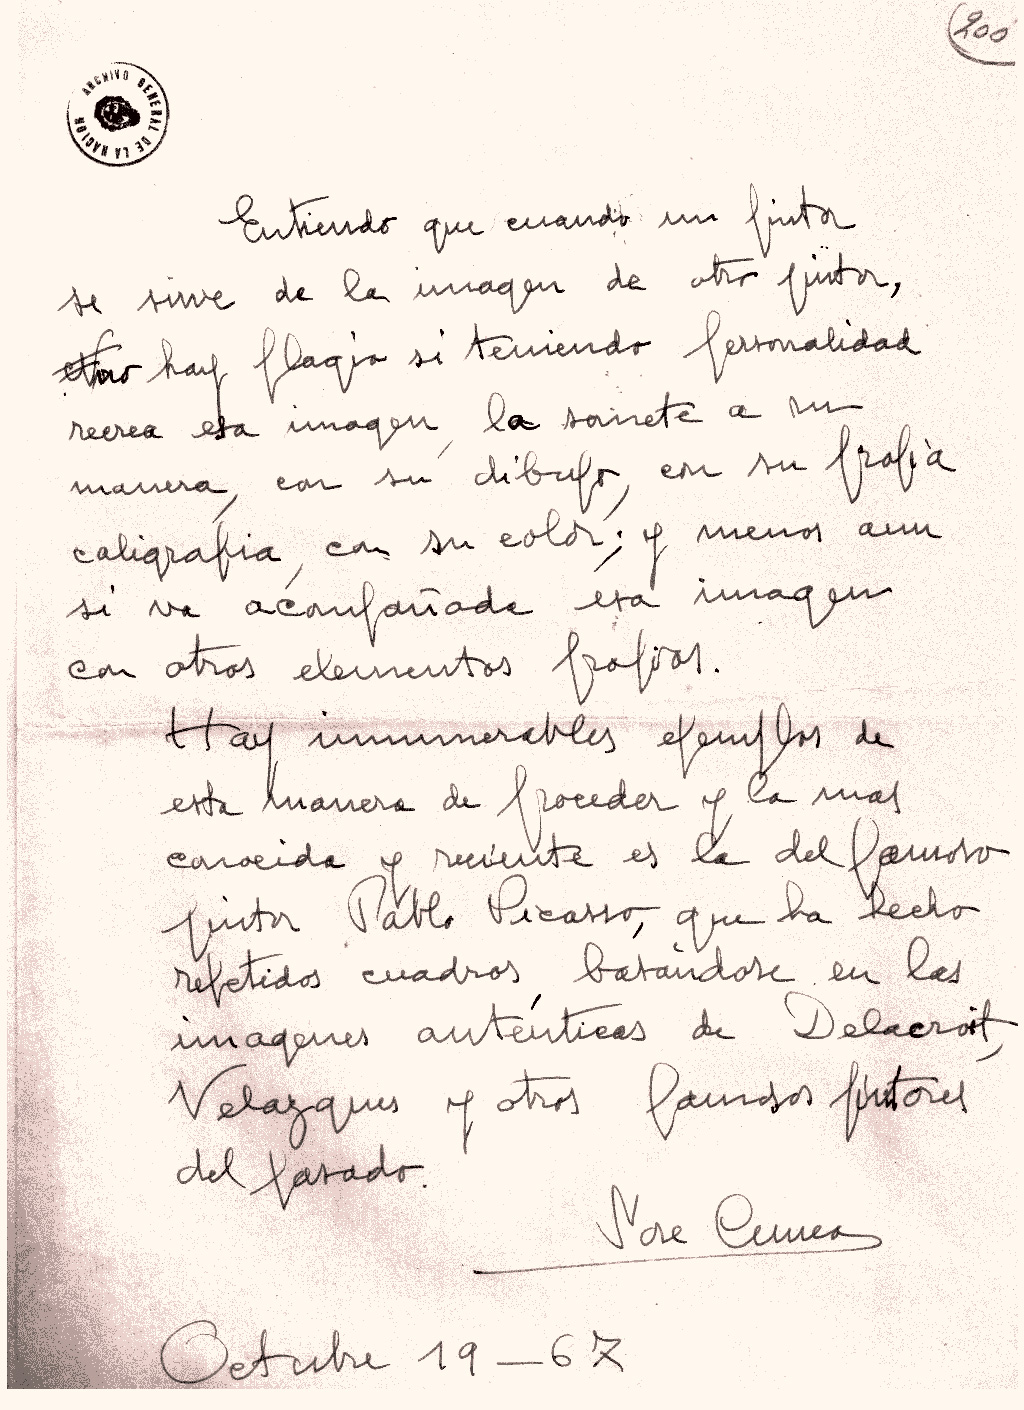 200
ARCHIVO GENERAL DE LA NACION
Entiendo que cuando un pintor
se sirve de la imagen de otro pintor,
no hay plagio si teniendo personalidad
recrea esa imagen, la somete a su
manera, con su dibujo, con su propia
caligrafia, con su color; y menos aun
si va acompañada esa imagen
con otros elementos propios.
Hay innumerables ejemplos de
esta manera de proceder y la mas
conocida y reciente es la del famoso
pintor Pablo Picasso, que ha hecho
repetidos cuadros, basándose en las
imagenes auténticas de Delacroit,
Velazques y otros famosos pintores
del pasado.
Octubre 19-67